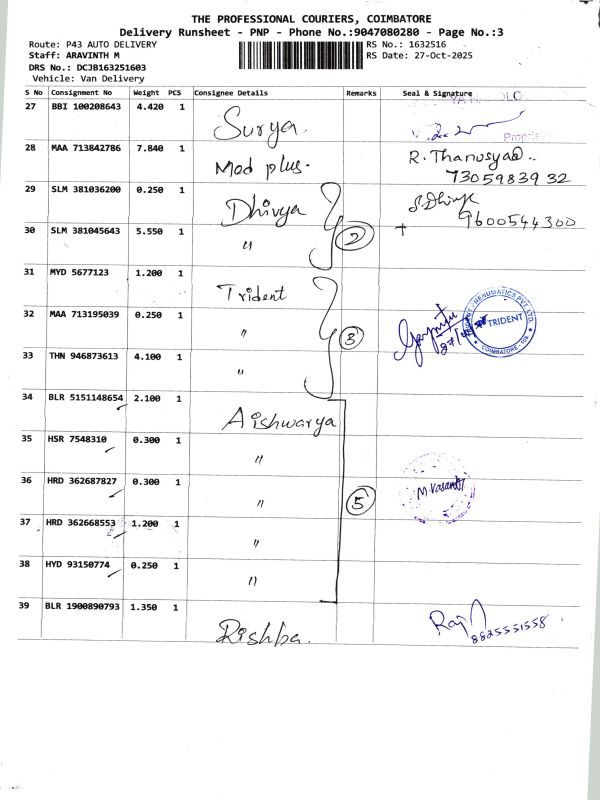 THE PROFESSIONAL COURIERS, COIMBATORE
Delivery Runsheet - PNP - Phone No.:9047080280 - Page No.:3
Route: P43 AUTO DELIVERY RS No.: 1632516
Staff: ARAVINTH M RS Date: 27-Oct-2025
DRS No.: DCJB163251603
Vehicle: Van Delivery
S No Consignment No Weight PCS Consignee Details Remarks Seal & Signature
27 BBI 100208643 4.420 1 Surya.
28 MAA 713842786 7.840 1 Med plus. R. Thanusyaa..
7305983932
29 SLM 381036200 0.250 1 Dhivya
9600544300
30 SLM 381045643 5.550 1 " 2
31 MYD 5677123 1.200 1 Trident
32 MAA 713195039 0.250 1 " 3 TRIDENT
COIMBATORE
33 THN 946873613 4.100 1 "
34 BLR 5151148654 2.100 1 Aishwarya
35 HSR 7548310 0.300 1 "
36 HRD 362687827 0.300 1 " 5
37 HRD 362668553 1.200 1 "
38 HYD 93150774 0.250 1 "
39 BLR 1900890793 1.350 1 Rishba. Raj
8825551558